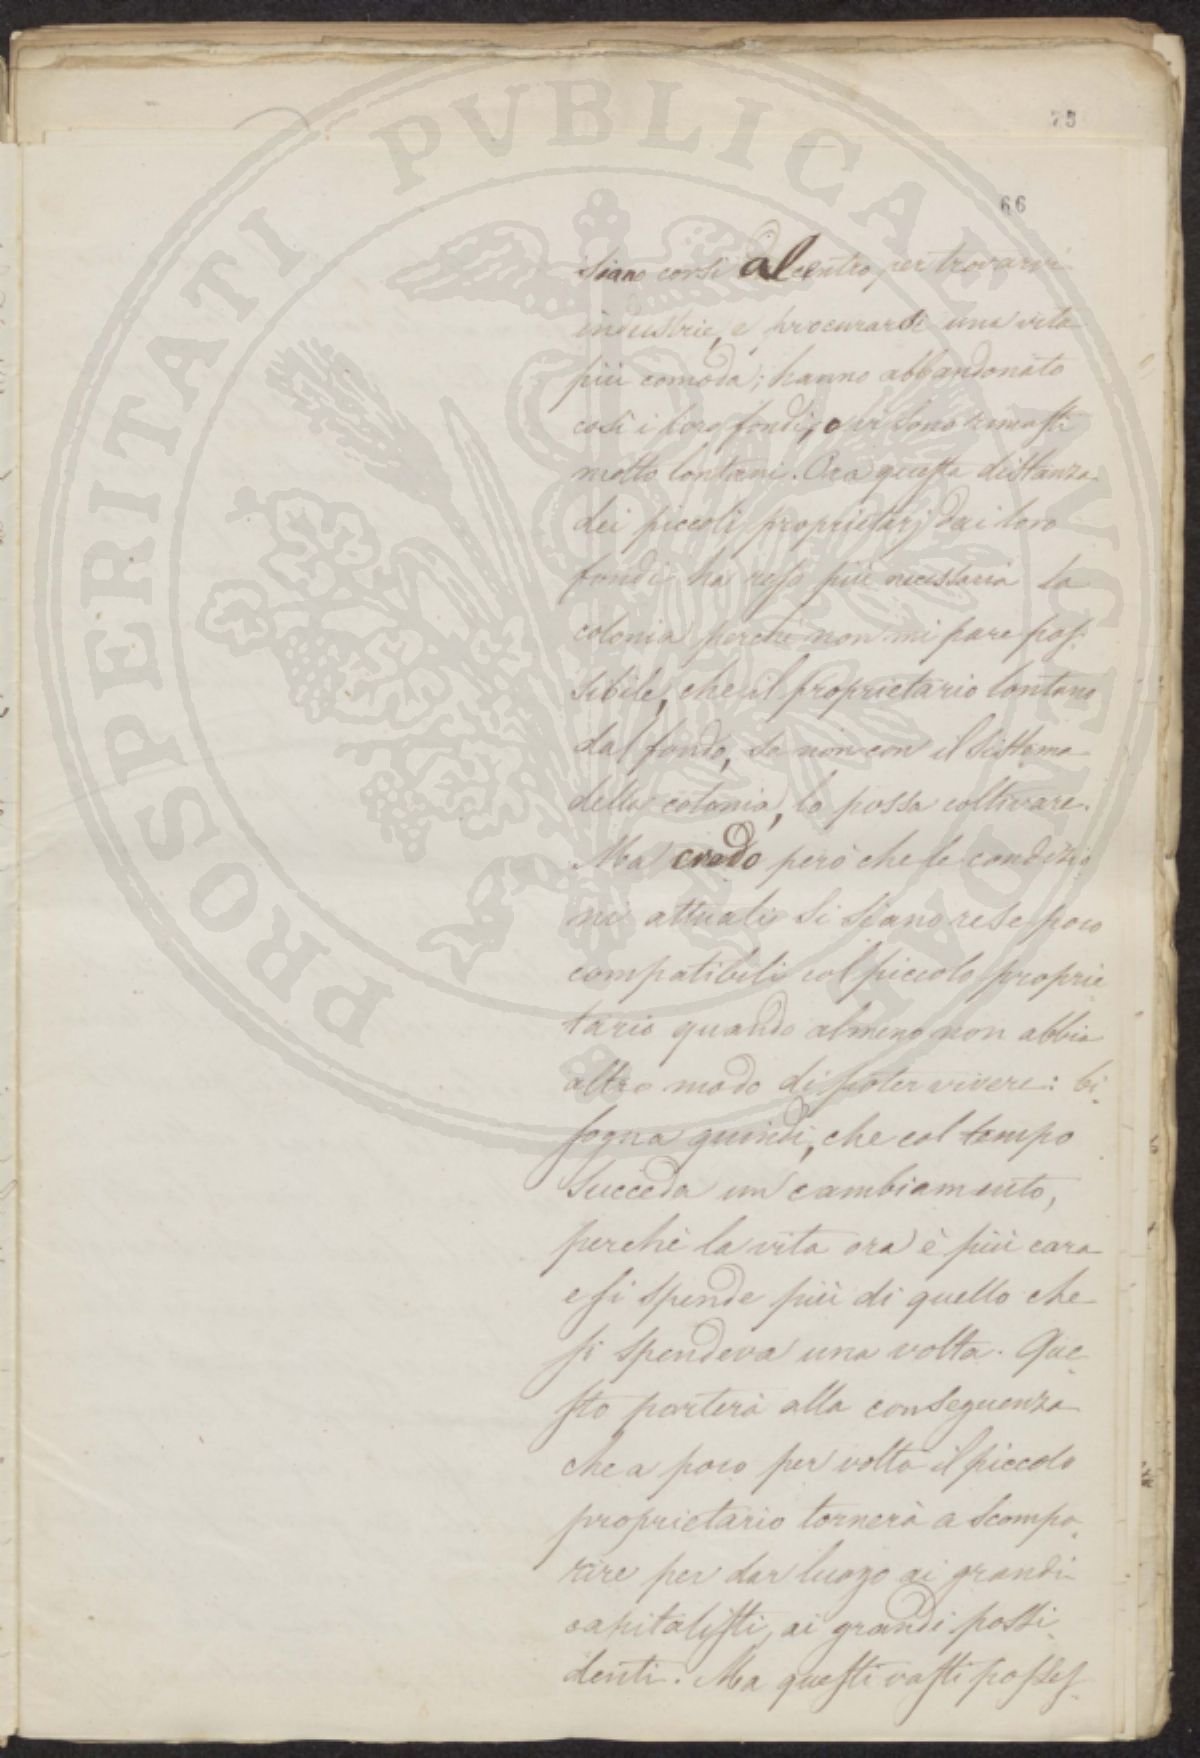 PROSPERITATI PVBLICAE AVGENDAE
75
66
siano corsi al centro per trovarvi
industrie, e procurarsi una vita
più comoda; hanno abbandonato
così i loro fondi, o vi sono rimasti
molto lontani. Ora questa distanza
dei piccoli proprietarj dai loro
fondi ha reso più necessaria la
colonia perchè non mi pare pos-
sibile, che il proprietario lontano
dal fondo, se non con il sistema
della colonia, lo possa coltivare.
Ma credo però che le condizio
ni attuali si siano rese poco
compatibili col piccolo proprie
tario quando almeno non abbia
altro modo di poter vivere: bi-
sogna quindi, che col tempo
succeda un cambiamento,
perchè la vita ora è più cara
e si spende più di quello che
si spendeva una volta. Que-
sto porterà alla conseguenza
che a poco per volta il piccolo
proprietario tornerà a scompa-
rire per dar luogo ai grandi
capitalisti, ai grandi possi-
denti. Ma questi vasti posses-